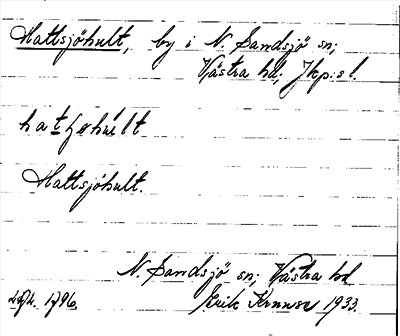 Hattsjöhult, by i N. Sandsjö sn;
Västra hd; Jkp:s l.
Hattsjöhult.
N. Sandsjö sn; Västra hd
1796. Erik 1933.